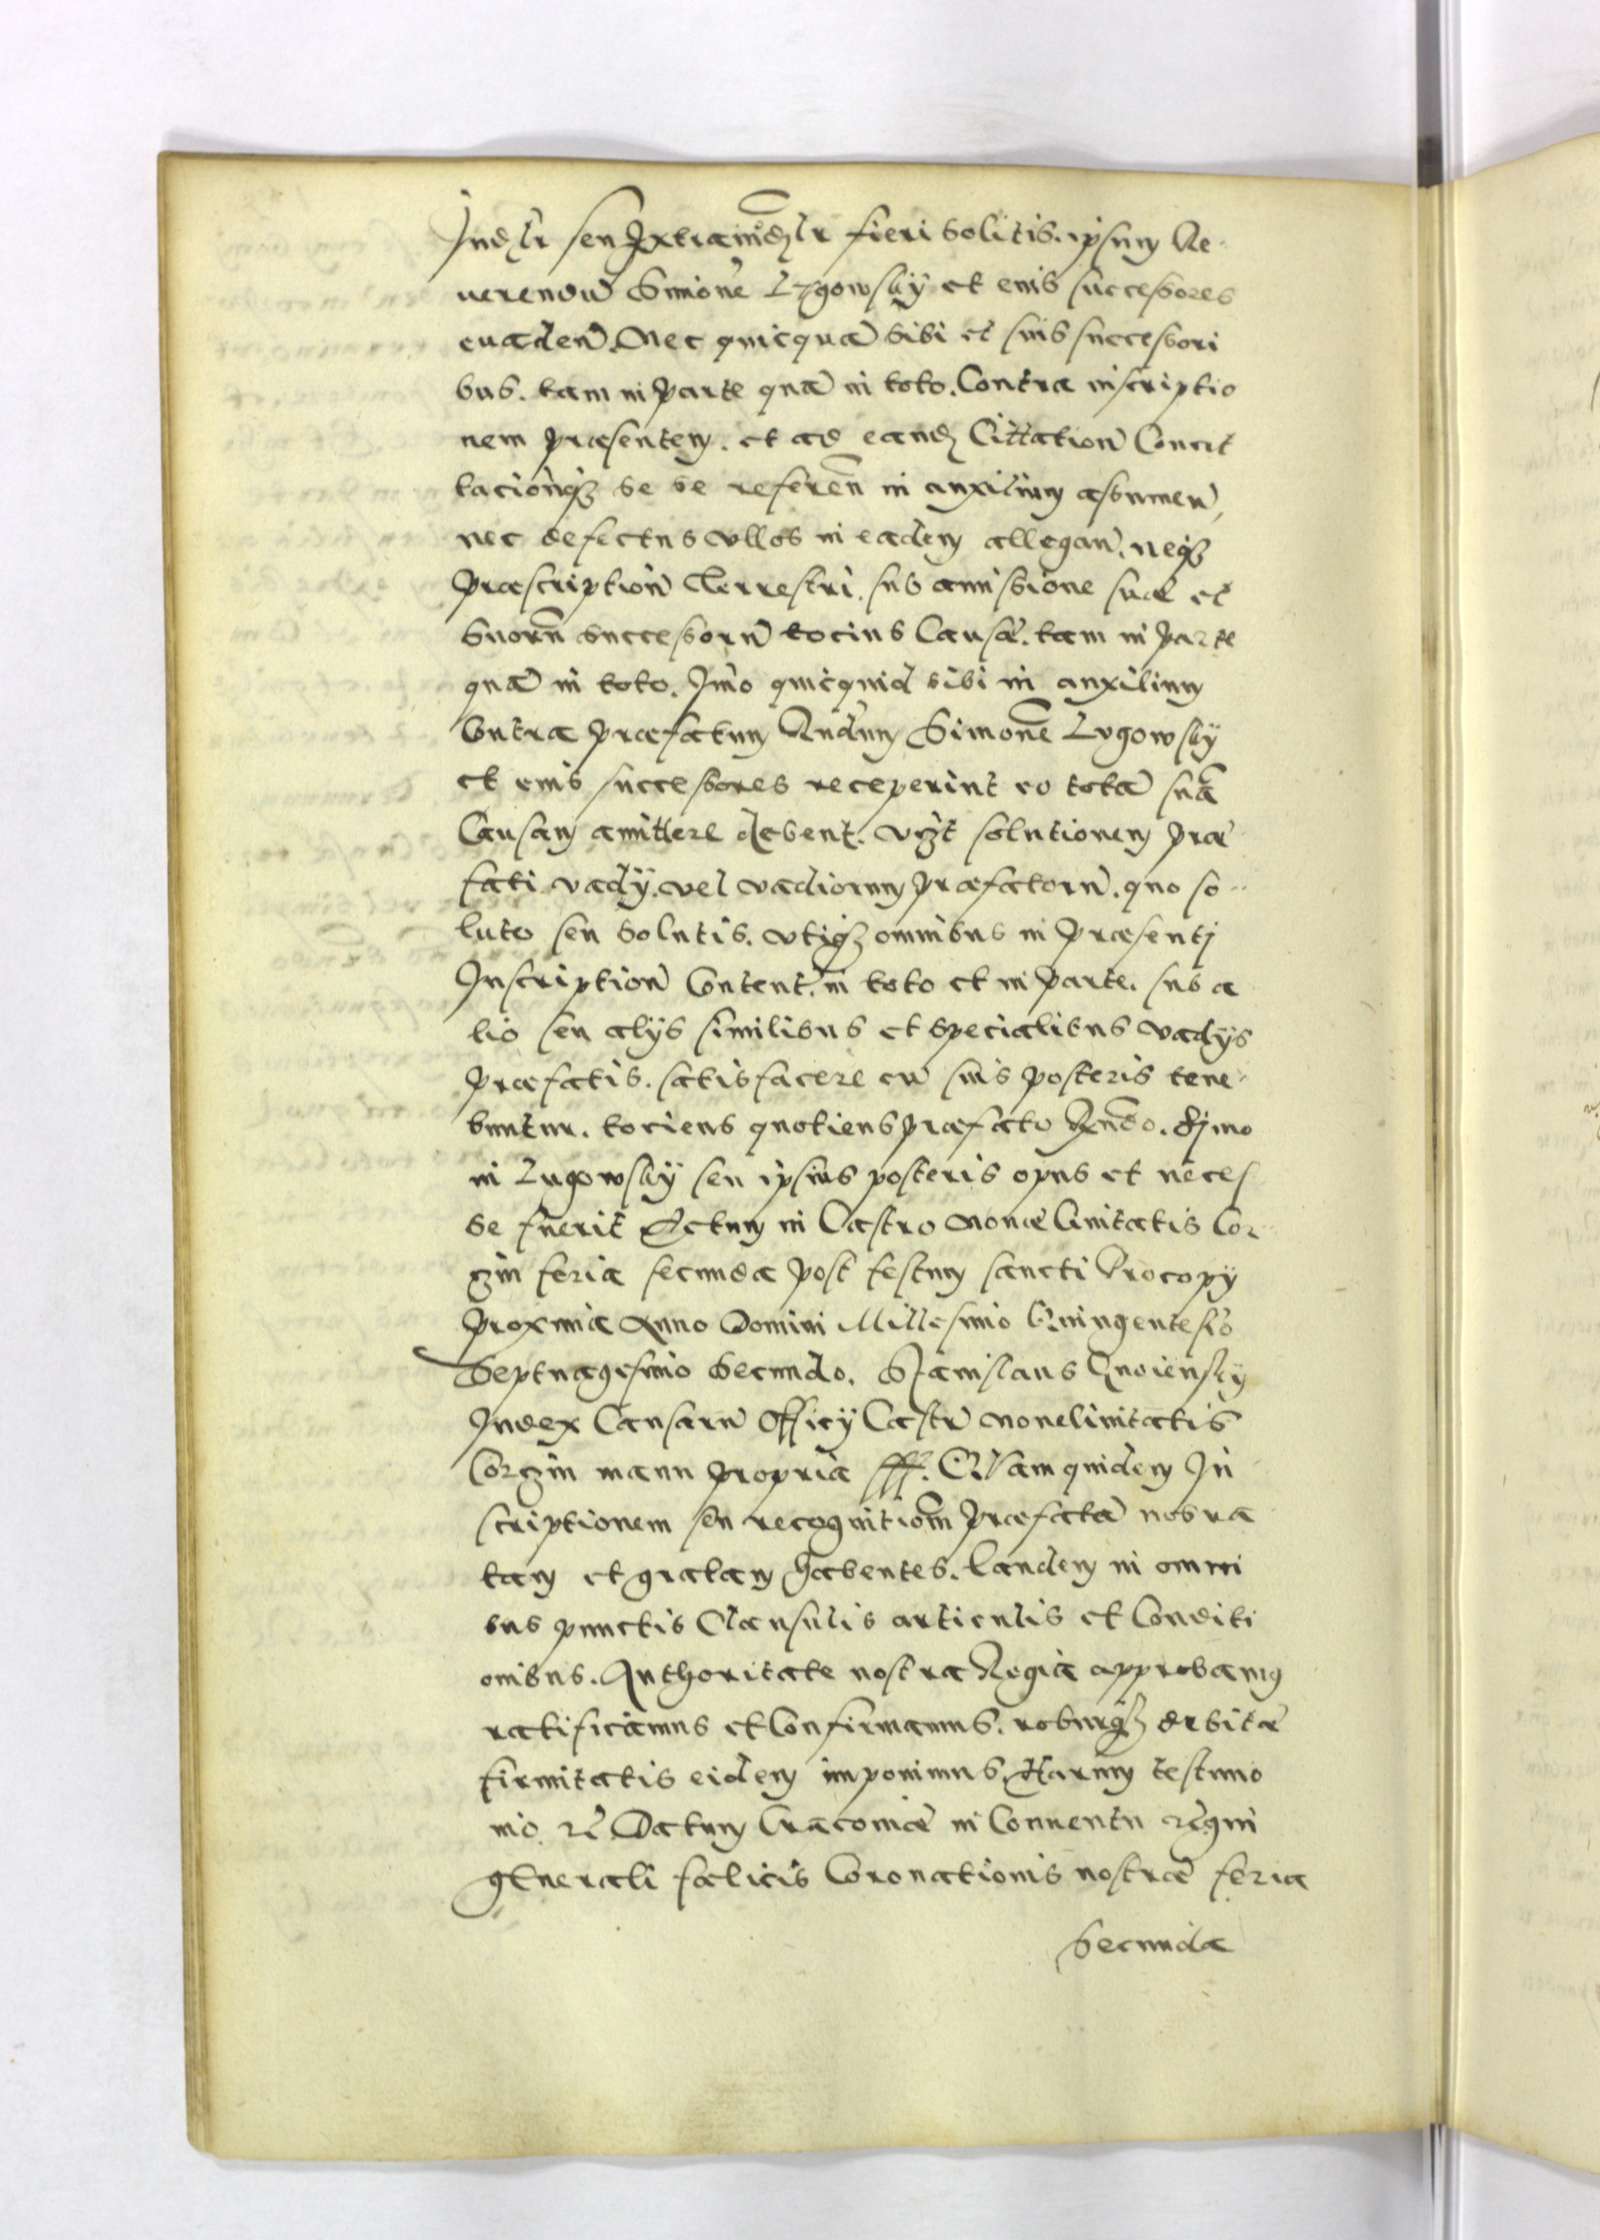 Judlr seu Extraiudlr fieri solitis. ipsum Re-
uerendū Simonē Lugowsky et eius successores
euadeñ. Nec quicquā sibi et suis successori
bus. tam in parte quā in toto. Contra inscriptio
nem præsentem. et ad eandē Cittationē Concit
tacionēq; se se refereñ in auxilium assumeñ,
nec defectus vllos in eadem allegañ. neq;
Præscriptionē Terrestri. sub amissione suæ et
suorū successorū tocius Causæ. tam in parte
quā in toto. Jmo quicquid sibi in auxilium
Contra præfatum Rndum Simonē Lugowsky
et eius successores receperint eo totā suā
Causam amittere debent. vzt solutionem præ
fati vadÿ. vel vadiorum præfatorū. quo so-
luto seu solutis. vtiq; omnibus in Præsentj
Jnscriptionē Content. in toto et in parte. sub a
lio seu alÿs similibus et specialibus vadÿs
præfatis. satisfacere cū suis posteris tene-
buntur. tociens quotiens præfato Rndo. Sjmo
ni Lugowsky seu ipsius posteris opus et neces
se fuerit Actum in Castro Nouæ Ciuitatis Cor-
zin feria secunda post festum sancti Procopÿ
proxima Anno Domini Millesimo Quingentesīo
Septuagesimo Secundo. Stanislaus Gnoiensky
Judex Causarū Officÿ Castrē Nouæciuitatis
Corzin manu propria sss. QVam quidem Jn
scriptionem seu recognitionē præfatā nos ra
tam et gratam habentes. Eandem in omni
bus punctis Clausulis articulis et Conditi
onibus. Authoritate nostra Regia approbamus
ratificamus et Confirmamus. roburq; debitæ
firmitatis eidem imponimus. Harum testimo
nio. rē Datum Cracoviæ in Conuentu regni
generali fælicis Coronationis nostræ feria
secunda